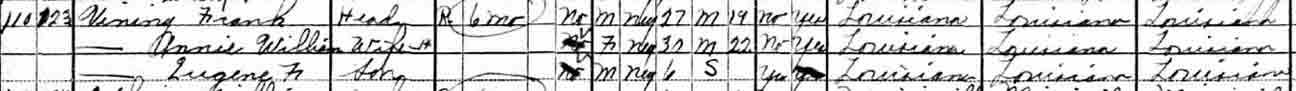 110 123 Vining Frank Head R 6 mo No M Neg 27 M 19 No Yes Louisiana Louisiana Louisiana
— Annie Willian Wife-H F Neg 37 M 22 No Yes Louisiana Louisiana Louisiana
— Eugene F Son M Neg 6 S Yes Louisiana Louisiana Louisiana